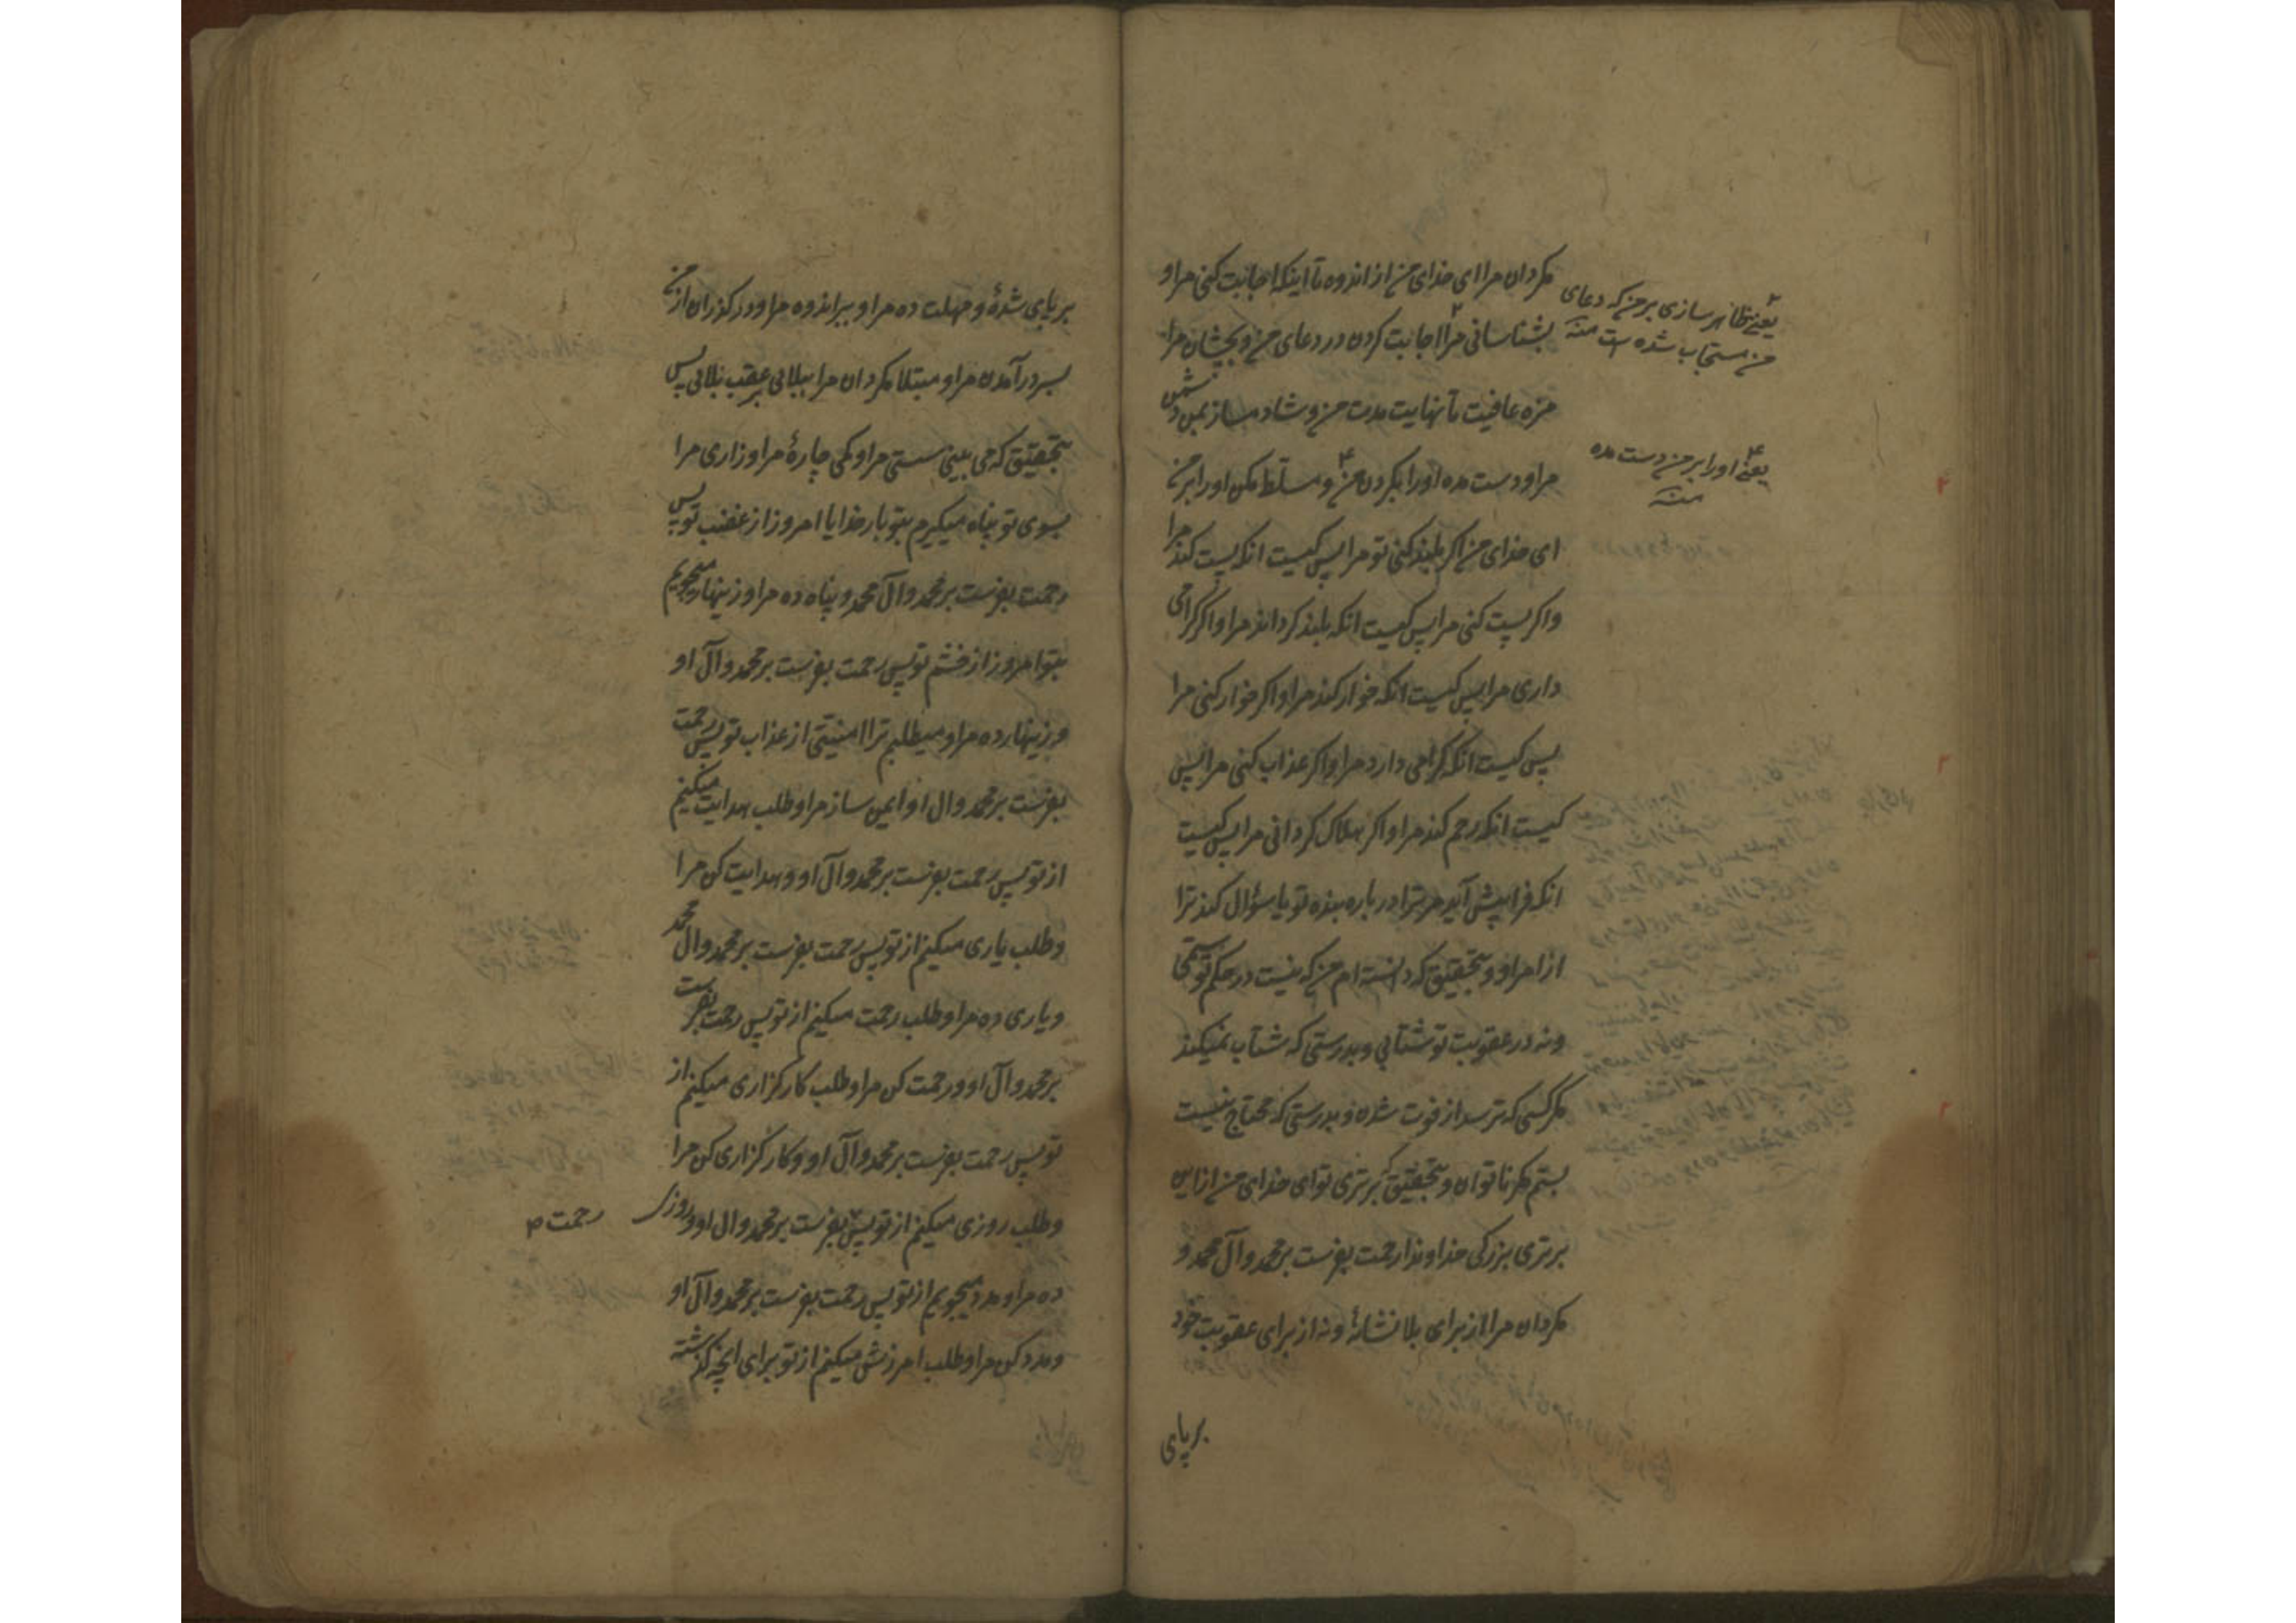 مکردان مرا ای خدای من از اندوه تا اینکه اجابت کنی مرا و
بشناسانی مرا اجابت کردن در دعای من و بچشان مرا
مزه عافیت تا نهایت مدت من و شاد مساز بمن دشمن
مرا و دست مده او را بکردن من و مسلط مکن او را بر من
ای خدای من اکر بلند کنی تو مرا پس کیست انکه پست کند مرا
و اکر پست کنی مرا پس کیست انکه بلند کرداند مرا و اکر کرامی
داری مرا پس کیست انکه خوار کند مرا و اکر خوار کنی مرا
پس کیست انکه کرامی دارد مرا و اکر عذاب کنی مرا پس
کیست انکه رحم کند مرا و اکر هلاک کردانی مرا پس کیست
انکه فرا پیش آید مر ترا در باره بنده تو یا سؤال کند ترا
از امر او و بتحقیق که دانسته ام من که نیست در حکم تو ستمی
و نه در عقوبت تو شتابی و بدرستی که شتاب نمیکند
مکر کسی که ترسد از فوت شدن و بدرستی که محتاج نیست
بستم مکر ناتوان و بتحقیق که برتری تو ای خدای من از این
برتری بزرکی خداوندا رحمت بفرست بر محمد و آل محمد و
مکردان مرا از برای بلا نشانهٔ و نه از برای عقوبت خود
برپای
۲
یعنی ظاهر سازی بر من که دعای
من مستجاب شده است منه
۴
یعنی او را بر من دست مده
منه
برپای شدهٔ و مهلت ده مرا و ببر اندوه مرا و در کذران از من
بسر در آمدن مرا و مبتلا مکردان مرا ببلائی بر عقب بلائی پس
بتحقیق که می بینی سستی مرا و کمی چارهٔ مرا و زاری مرا
بسوی تو پناه میکیرم بتو بار خدایا امروز از غضب تو پس
رحمت بفرست بر محمد و آل محمد و پناه ده مرا و زینهار میجویم
بتو امروز از خشم تو پس رحمت بفرست بر محمد و آل او
و زینهار ده مرا و میطلبم ترا امنیتی از عذاب تو پس رحمت
بفرست بر محمد و ال او و ایمن ساز مرا و طلب هدایت میکنم
از تو پس رحمت بفرست بر محمد و آل او و هدایت کن مرا
و طلب یاری میکنم از تو پس رحمت بفرست بر محمد و ال محمد
و یاری ده مرا و طلب رحمت میکنم از تو پس رحمت بفرست
بر محمد و آل او و رحمت کن مرا و طلب کارکزاری میکنم از
تو پس رحمت بفرست بر محمد و آل او و کارکزاری کن مرا
و طلب روزی میکنم از تو پس بفرست بر محمد و ال او و روزی
رحمت
ده مرا و مدد میجویم از تو پس رحمت بفرست بر محمد و آل او
و مدد کن مرا و طلب امرزش میکنم از تو برای انچه کذشته